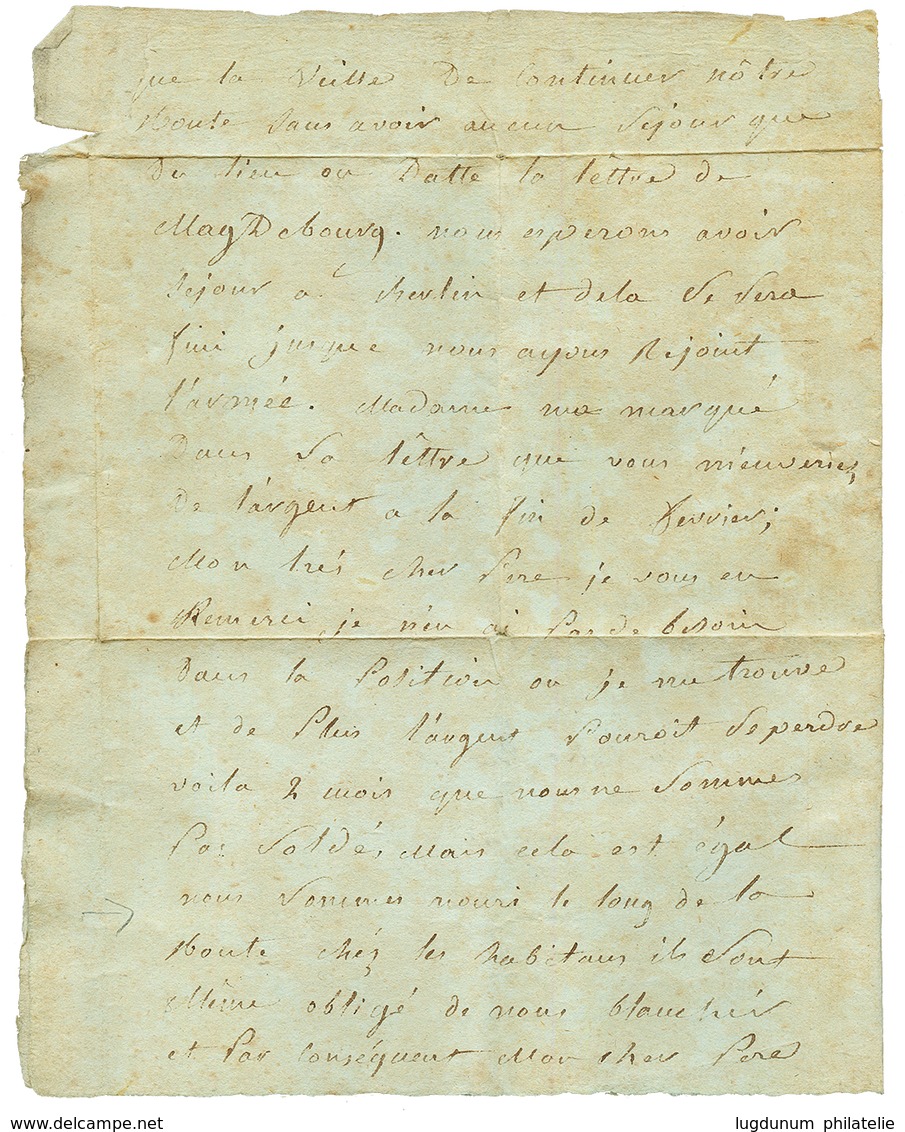 que la Veille De Continuer nôtre
Route Sans avoir aucun Sejour que
Du lieu ou Datte la lêttre de
MagDebourg. nous esperons avoir
Sejour a Berlin et dela Se Sera
fini jusque nous ayons Rejoint
l'armée. Madame me marqué
Dans Sa lêttre que vous m'enveriez
De l'argent a la fin de fevrier;
Mon trés cher Pere je vous en
Remerci, je n'en ai Pas de besoin
Dans la Position ou je me trouve
et de Plus l'argent Pouroit Se perdre
voila 2 mois que nous ne Sommes
Pas Soldés, Mais cela est égal
nous Sommes nouri le long de la
Route chés les habitans ils Sont
Même obligé de nous blanchir
et Par Conséquent Mon cher Pere
www.delcampe.net
lugdunum philatelie